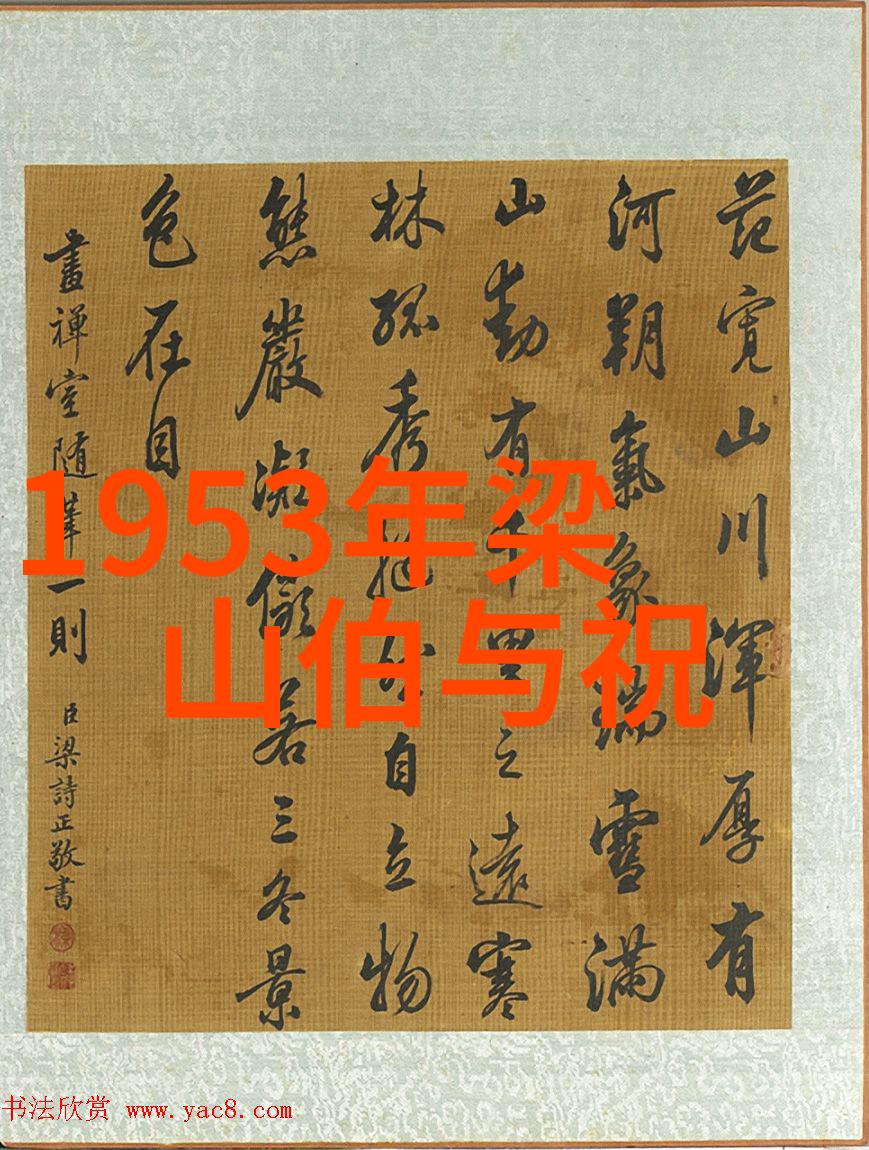 范寬山川渾厚有
河朔氣象瑞雪滿
山動有千里之遠寒
林孤秀挺然自立物
態嚴凝儼若三冬景
色在目
畫禪室隨筆一則 臣梁詩正敬書
1953年梁
山伯与祝
书法欣赏 www.yac8.com